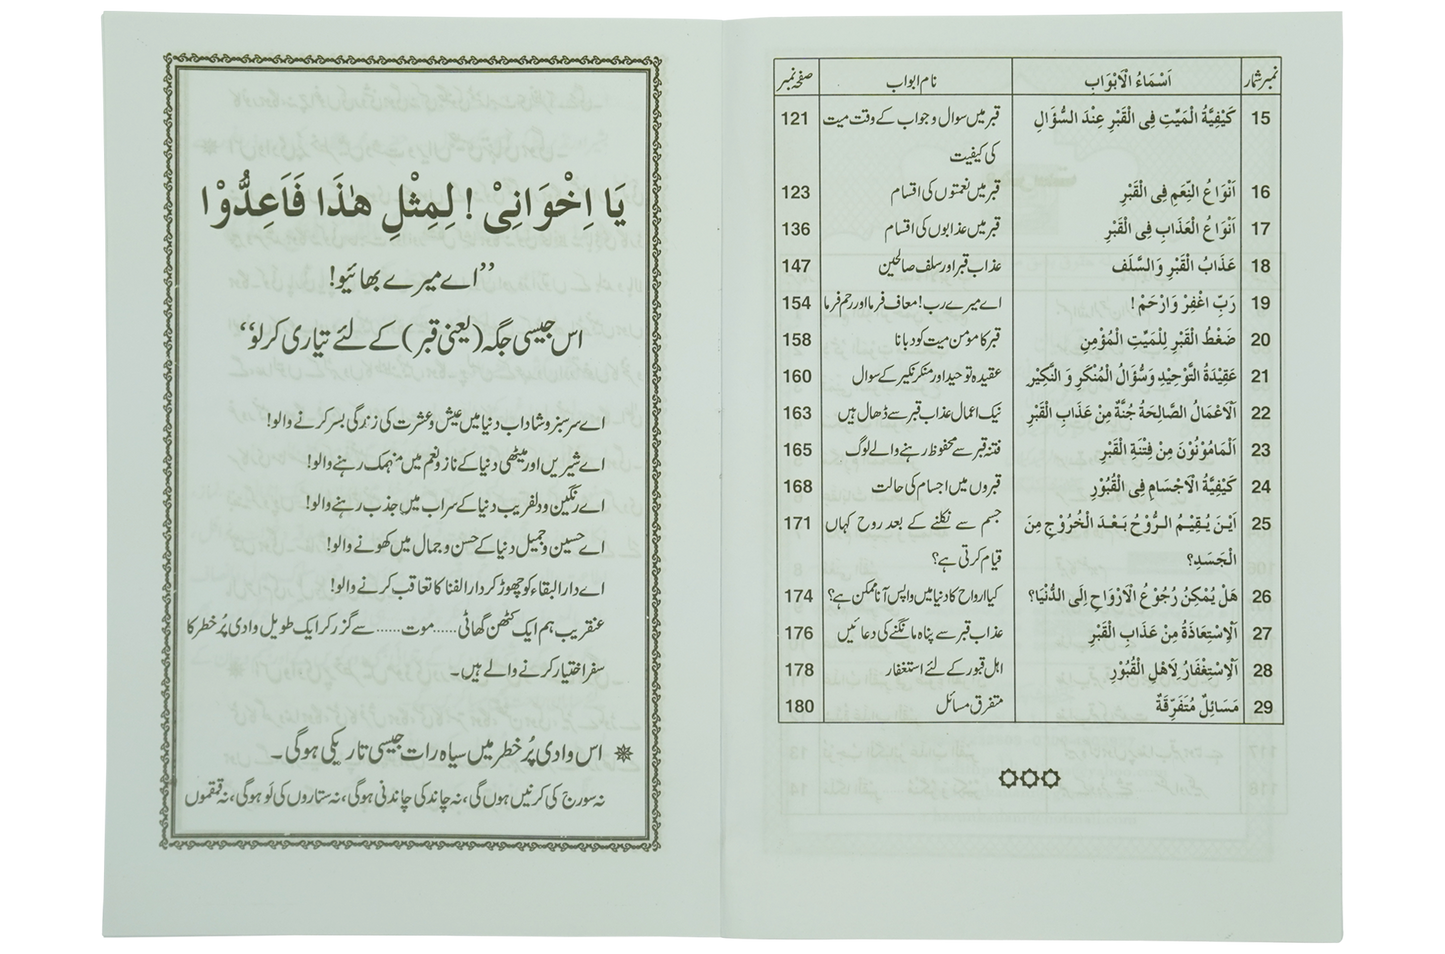 نمبر شمار اَسْمَاءُ الْاَبْوَاب نام ابواب صفحہ نمبر
15 كَيْفِيَّةُ الْمَيِّتِ فِى الْقَبْرِ عِنْدَ السُّؤَالِ قبر میں سوال و جواب کے وقت میت 121
کی کیفیت
16 اَنْوَاعُ النِّعَمِ فِى الْقَبْرِ قبر میں نعمتوں کی اقسام 123
17 اَنْوَاعُ الْعَذَابِ فِى الْقَبْرِ قبر میں عذابوں کی اقسام 136
18 عَذَابُ الْقَبْرِ وَالسَّلَف عذاب قبر اور سلف صالحین 147
19 رَبِّ اغْفِرْ وَارْحَمْ ! اے میرے رب! معاف فرما اور رحم فرما 154
20 ضَغْطُ الْقَبْرِ لِلْمَيِّتِ الْمُؤْمِنِ قبر کا مومن میت کو دبانا 158
21 عَقِيْدَةُ التَّوْحِيْدِ وَسُؤَالُ الْمُنْكَرِ وَ النَّكِيْر عقیدہ توحید اور منکر نکیر کے سوال 160
22 اَلْاَعْمَالُ الصَّالِحَةُ جُنَّةٌ مِنْ عَذَابِ الْقَبْرِ نیک اعمال عذاب قبر سے ڈھال ہیں 163
23 اَلْمَامُوْنُوْنَ مِنْ فِتْنَةِ الْقَبْرِ فتنہ قبر سے محفوظ رہنے والے لوگ 165
24 كَيْفِيَّةُ الْاَجْسَامِ فِى الْقُبُوْرِ قبروں میں اجسام کی حالت 168
25 اَيْنَ يُقِيْمُ الرُّوْحُ بَعْدَ الْخُرُوْجِ مِنَ جسم سے نکلنے کے بعد روح کہاں 171
الْجَسَدِ؟ قیام کرتی ہے؟
26 هَلْ يُمْكِنُ رُجُوْعُ الْاَرْوَاحِ اِلَى الدُّنْيَا؟ کیا ارواح کا دنیا میں واپس آنا ممکن ہے؟ 174
27 اَلْاِسْتِعَاذَةُ مِنْ عَذَابِ الْقَبْرِ عذاب قبر سے پناہ مانگنے کی دعائیں 176
28 اَلْاِسْتِغْفَارُ لِاَهْلِ الْقُبُوْرِ اہل قبور کے لئے استغفار 178
29 مَسَائِلُ مُتَفَرِّقَةٌ متفرق مسائل 180
يَا اِخْوَانِىْ ! لِمِثْلِ هٰذَا فَاَعِدُّوْا
”اے میرے بھائیو!
اس جیسی جگہ (یعنی قبر) کے لئے تیاری کرلو“
اے سرسبز و شاداب دنیا میں عیش و عشرت کی زندگی بسر کرنے والو!
اے شیریں اور میٹھی دنیا کے ناز و نعم میں منہمک رہنے والو!
اے رنگین و دلفریب دنیا کے سراب میں جذب رہنے والو!
اے حسین و جمیل دنیا کے حسن و جمال میں کھونے والو!
اے دار البقاء کو چھوڑ کر دار الفنا کا تعاقب کرنے والو!
عنقریب ہم ایک کٹھن گھاٹی ...... موت ...... سے گزر کر ایک طویل وادی پُر خطر کا
سفر اختیار کرنے والے ہیں۔
اس وادی پُر خطر میں سیاہ رات جیسی تاریکی ہوگی۔
نہ سورج کی کرنیں ہوں گی، نہ چاند کی چاندنی ہوگی، نہ ستاروں کی لَو ہوگی، نہ قمقموں